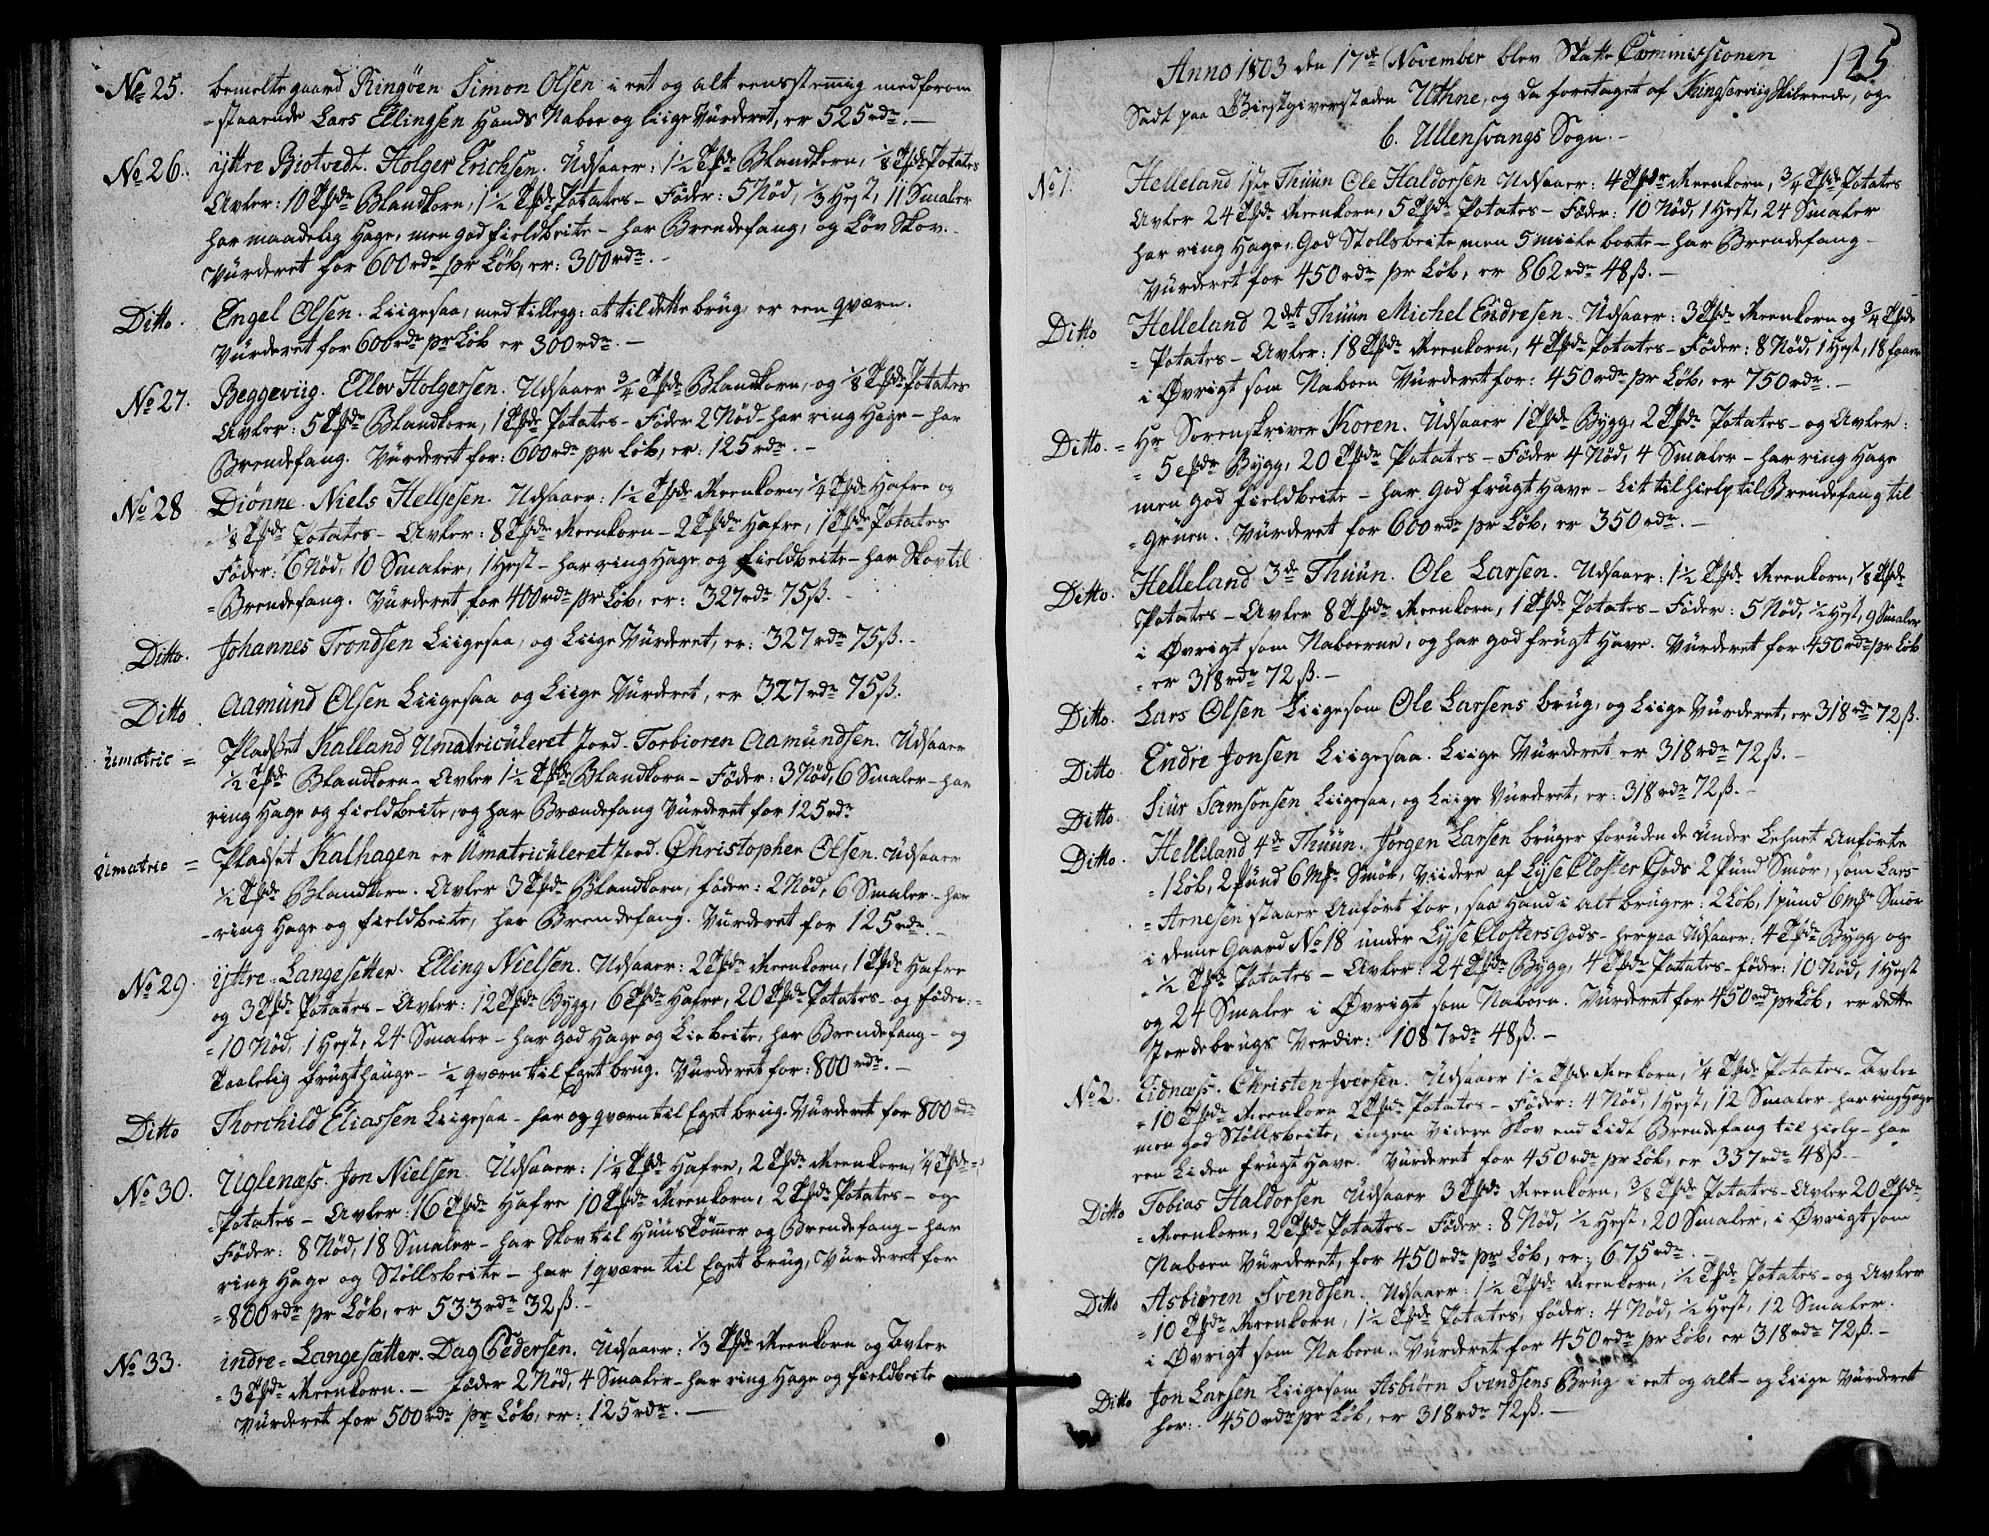 No 25. bemelte gaard Ringöen Simon Olsen i eet og alt eensstemig med forom
=staaende Lars Ellingsen Hands Naboe og liige Vürderet, er 525 rdr. —
No 26. ÿttre Biotvedt. Holger Erichsen. Udsaaer: 1½ Tpde Blandkorn, 1/8 Tpde Potates
Avler: 10 Tpde Blandkorn, 1½ Tpde Potates – Föder: 5 Nöd, 1/3 Hest, 11 Smaler
har maadelig Hage, men god fieldbeite – har Brendefang, og Löv Skov. –
Vürderet for 600 rdr pr Löb, er: 300 rdr. –
Ditto. Engel Olsen. Liigesaa, med tillegg: at til dette brüg, er een qværn.
Vürderet for 600 rdr pr Löb er 300 rdr. –
No 27. Beggeviig. Ellev Holgersen. Udsaaer ¾ Tpde Blandkorn, og 1/8 Tpde Potates
Avler: 5 Tpde Blandkorn, 1 Tpde Potates – Föder 2 Nöd – har ring Hage – har
Brendefang. Vürderet for: 600 rdr pr Löb, er: 125 rdr. –
No 28 Diönne. Niels Helljesen. Udsaaer: 1½ Tpde Meenkorn, ¼ Tpde Hafre og
1/8 Tpde Potates – Avler: 8 Tpde Meenkorn – 2 Tpde Hafre, 1 Tpde Potates
Föder: 6 Nöd, 10 Smaler, 1 Hest – har ring Hage og fieldbeite – har Skov til
=Brendefang. Vürderet for 400 rdr pr Löb, er: 327 rdr 75 ß. –
Ditto. Johannes Trondsen Liigesaa, og Liige Vürderet, er: 327 rdr 75 ß. –
Ditto. Aamünd Olsen Liigesaa og Liige Vürderet, er 327 rdr 75 ß.
ümatric = Pladset Kalland Umatriculeret Jord. Torbioren Aamündsen. Udsaaer
½ Tpde Blandkorn – Avler 1½ Tpde Blandkorn – Föder: 3 Nöd, 6 Smaler – har
ring Hage og fieldbeite, og har Brændefang Vürderet for 125 rdr
ümatric = Pladset Kalhagen er Umatriculeret Jord. Christopher Olsen. Udsaaer
½ Tpde Blandkorn. Avler 3 Tpde Blandkorn, föder: 2 Nöd, 6 Smaler – har
– ring Hage og fieldbeite, har Brendefang. Vurderet for 125 rdr. –
No 29. ÿttre = Langesetter. Elling Nielsen. Udsaaer: 2 Tpde Meenkorn, 1 Tpde Hafre
og 3 Tpde Potates – Avler: 12 Tpde Bygg, 6 Tpde Hafre, 20 Tpde Potates – og föder: –
=10 Nöd, 1 Hest, 24 Smaler – har god Hage og Liebeite, har Brendefang – og
Taalelig frügthauge – ½ qværn til Eget brug. Vürderet for: 800 rdr. –
Ditto Thorchild Eliassen Liigesaa – har og qværn til Eget brüg. Vürderet for 800 rdr
No 30. Uglenæss. Jon Nielsen. Udsaaer: 1¼ Tpde Hafre, 2 Tpde Meenkorn, ¼ Tpde =
=Potates – Avler: 16 Tpde Hafre 10 Tpde Meenkorn, 2 Tpde Potates – og
Föder: 8 Nöd, 18 Smaler – har Skov til Hüüstömer og Brendefang – har
ring Hage og Stöllsbeite – har 1 qværn til Eget brüg, Vürderet for
=800 rdr pr Löb, er 533 rdr 32 ß. –
No 33. indre = Langesætter. Dag Pedersen. Udsaaer: 1/3 Tpde Meenkorn og Avler
=3 Tpde Meenkorn. – föder 2 Nöd, 4 Smaler – har ring Hage og fieldbeite
Vürderet for 500 rdr pr Löb, er: 125 rdr. –
125
Anno 1803 den 17de November blev Skatte Commissionen
Sadt paa Giestgiverstaden Uthne, og da foretaget af Kingserviig Skibreede, og
6. Ullensvangs Sogn. –
No 1. Helleland 1ste Thüün Ole Haldorsen Udsaaer: 4 Tpde Meenkorn, ¾ Tpde Potates
Avler 24 Tpde Meenkorn, 5 Tpde Potates – Föder: 10 Nöd, 1 Hest, 24 Smaler
har ring Hage, God Stollsbeite men 5 miile borte – har Brendefang –
Vürderet for 450 rdr pr Löb, er 862 rdr 48 ß. –
Ditto Helleland 2det Thüün Michel Endresen. Udsaaer: 3 Tpde Meenkorn og ¾ Tpde
=Potates – Avler: 18 Tpde Meenkorn, 4 Tpde Potates – Föder: 8 Nöd, 1 Hest, 18 faarer
i Övrigt som Naboen Vürderet for: 450 rdr pr Löb, er 750 rdr. –
Ditto. = Hr Sorenskriver Koren. Udsaaer 1 Tpde Bygg, 2 Tpde Potates – og Avler:
= 5 Tpde Bygg, 20 Tpde Potates – Föder 4 Nöd, 4 Smaler – har ring Hage
men god fieldbeite – har God frügt Have – Lit til hielp til Brendefang til
=Grüen. Vürderet for 600 rdr pr Löb, er 350 rdr. –
Ditto. Helleland 3de Thüün. Ole Larsen. Udsaaer: 1½ Tpde Meenkorn, 1/8 Tpde
Potates – Avler 8 Tpde Meenkorn, 1 Tpde Potates – Föder: 5 Nöd, ½ Hest, 9 Smaler
i Övrigt som Naboerne, og har god frügt Have. Vürderet for 450 rdr pr Löb
= er 318 rdr 72 ß. –
Ditto. Lars Olsen Liigesom Ole Larsens brüg, og Liige Vürderet, er 318 rdr 72 ß.
Ditto. Endre Jonsen Liigesaa. Liige Vürderet er 318 rdr 72 ß. –
Ditto. Siür Samsonsen Liigesaa, og Liige Vürderet, er: 318 rdr 72 ß. –
Ditto. Helleland 4de Thüün. Jörgen Larsen brüger foruden de ünder Lehnet Anförte
=1 Löb, 2 Pünd 6 Mrk Smör, Viidere af Lÿse Closter Gods 2 Pünd Smör, som Lars
=Arnesen staaer Anfört for, saa Hand i alt brüger: 2 Löb, 1 pünd 6 Mrk Smör
i denne Gaard No 18 under Lÿse Closters Gods – herpaa Udsaaer: 4 Tpde Bygg og
– ½ Tpde Potates – Avler: 24 Tpde Bygg, 4 Tpde Potates – föder: 10 Nöd, 1 Hest
og 24 Smaler i Övrigt som Naboen. Vürderet for 450 rdr pr Löb, er dette
Jordebrügs Verdie: 1087 rdr 48 ß. –
No 2. Eidnæss. Christen Iversen. Udsaaer 1½ Tpde Meenkorn, ¼ Tpde Potates – Avler
=10 Tpde Meenkorn 2 Tpde Potates – Föder: 4 Nöd, 1 Hest, 12 Smaler – har ring Hage
men god Stöllsbeite, ingen videre Skov end Lidt Brendefang til hielp – har
een Liden frügt Have. Vürderet for 450 rdr pr Löb, er 337 rdr 48 ß. –
Ditto Tobias Haldorsen Udsaaer 3 Tpde Meenkorn, 3/8 Tpde Potates – Avler 20 Tpde
=Meenkorn, 2 Tpde Potates – Föder: 8 Nöd, ½ Hest, 20 Smaler, i Övrigt som
Naboen Vürderet, for 450 rdr pr Löb, er: 675 rdr. –
Ditto Asbiören Svendsen. Udsaaer: 1½ Tpde Meenkorn, ½ Tpde Potates – og Avler
=10 Tpde Meenkorn, 1½ Tpde Potates, föder: 4 Nöd, ½ Hest, 12 Smaler.
i Övrigt som Naboen. Vürderet for 450 rdr pr Löb, er 318 rdr 72 ß. –
Ditto Jon Larsen Liigesom Asbiörn Svendsens Brüg i eet og alt – og Liige Vürderet
for: 450 rdr pr Löb, er 318 rdr 72 ß. –